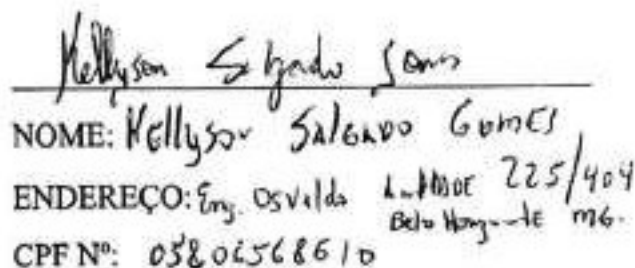 Kellyson Salgado Gomes
NOME: Kellyson SALGADO GOMES
ENDEREÇO: Eng. Osvaldo 225/404
Belo Horizonte MG.
CPF Nº: 05806568610